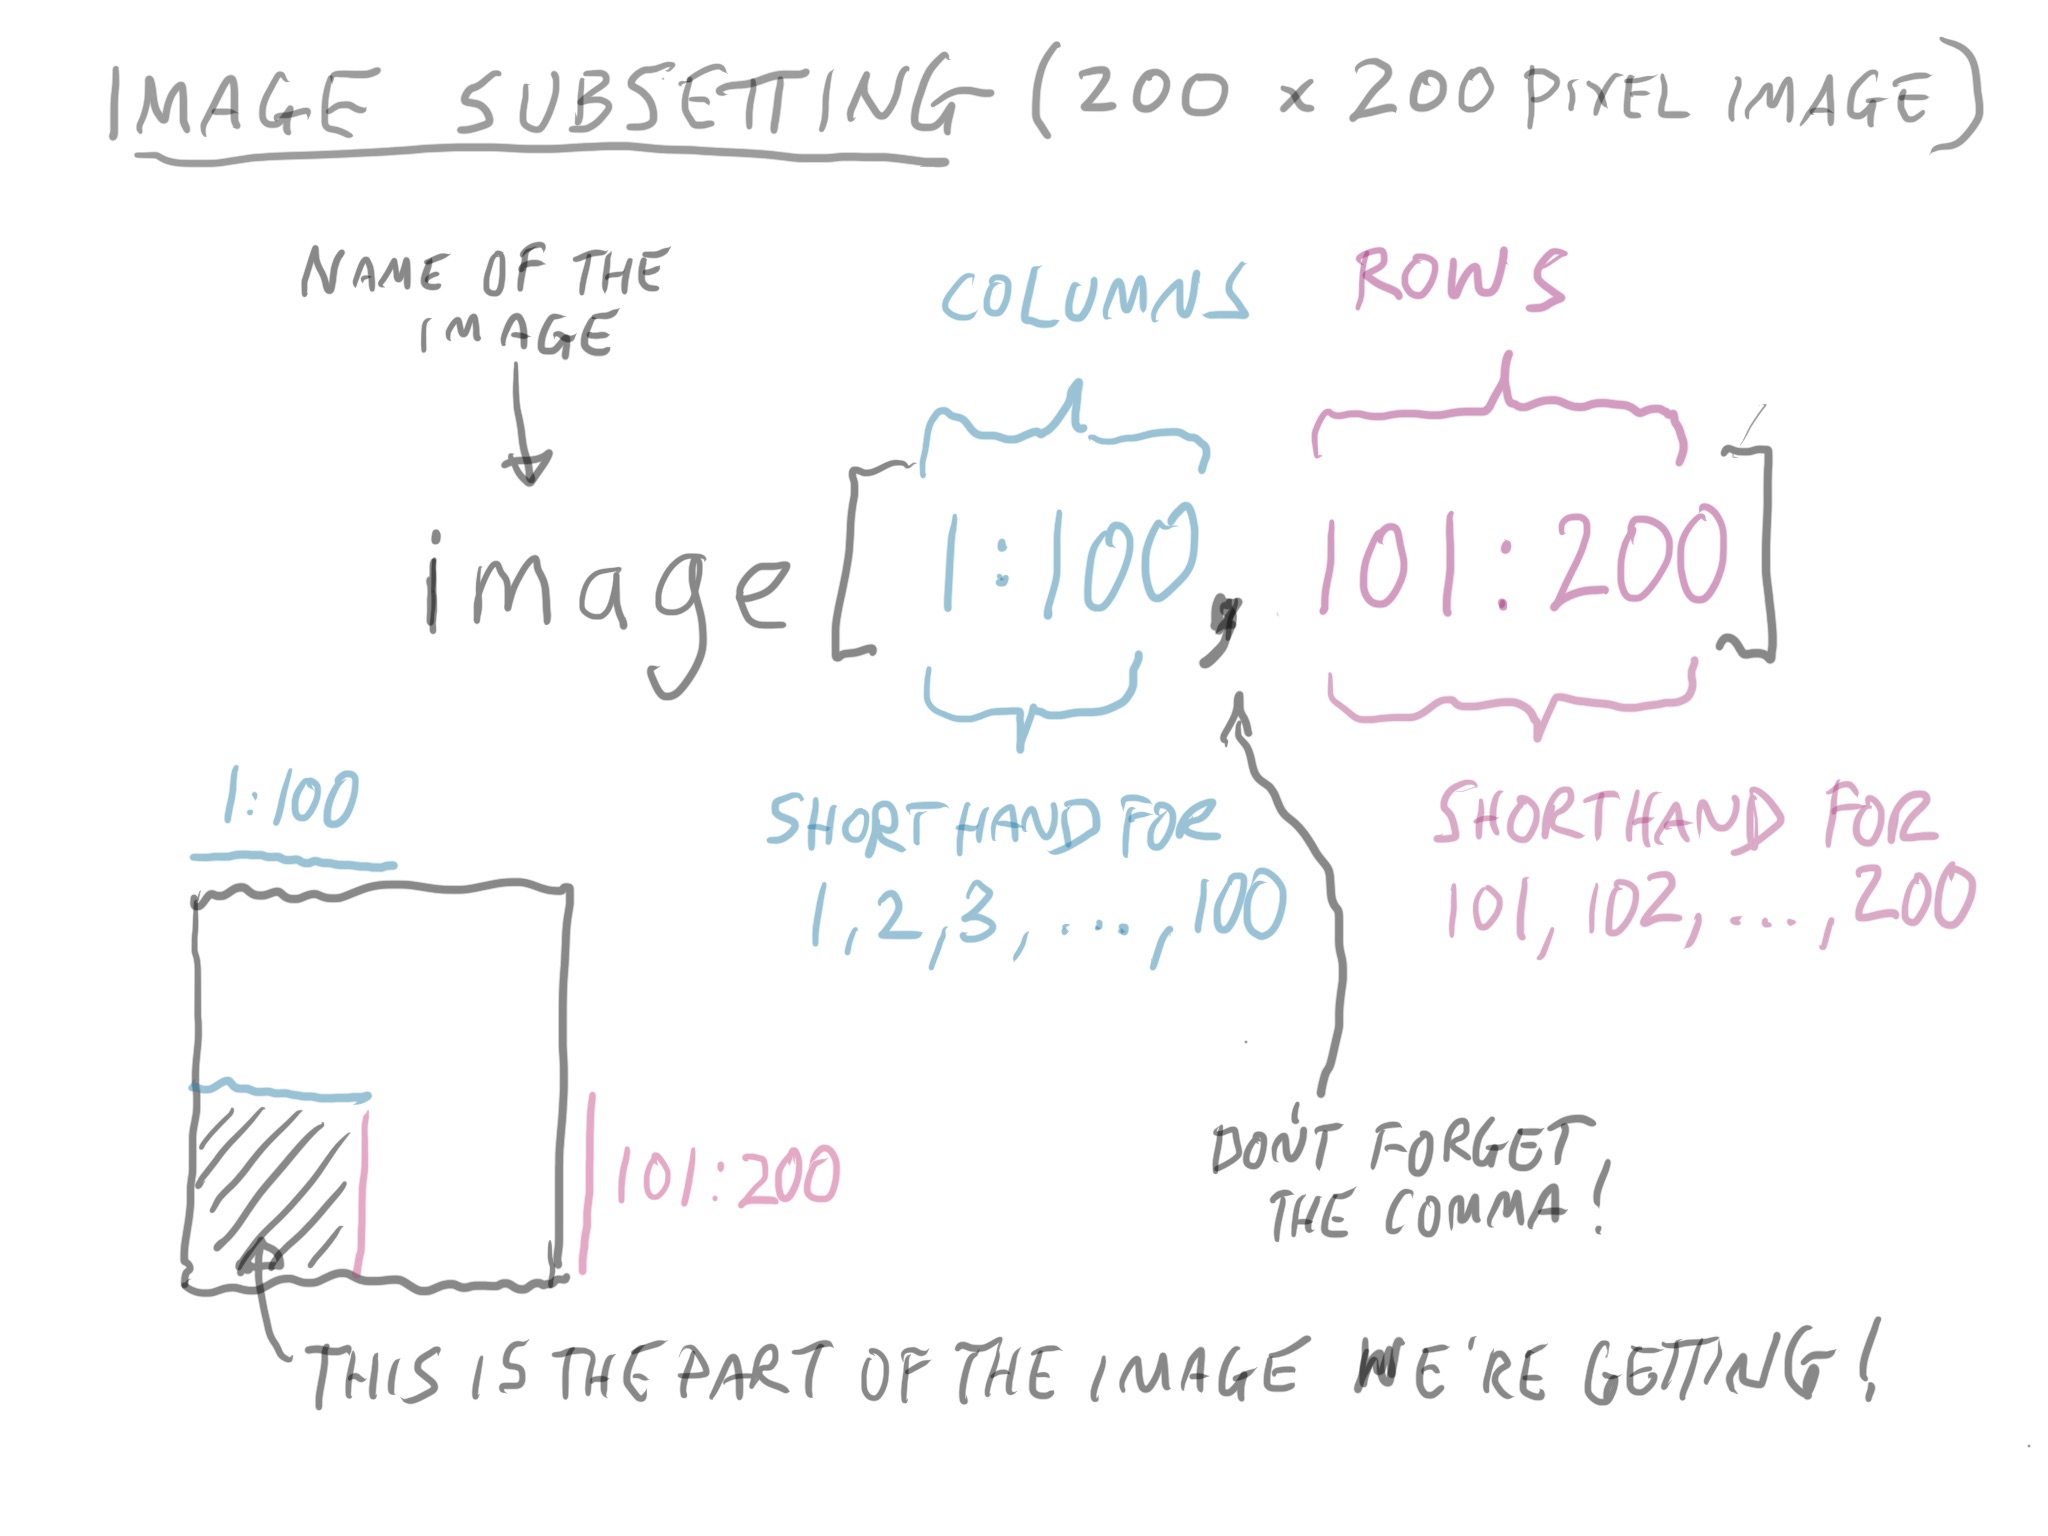 IMAGE SUBSETTING (200 x 200 PIXEL IMAGE)
NAME OF THE
IMAGE
COLUMNS
ROWS
image[1:100, 101:200]
SHORTHAND FOR
1,2,3,...,100
SHORTHAND FOR
101,102,...,200
1:100
101:200
DON'T FORGET
THE COMMA!
THIS IS THE PART OF THE IMAGE WE'RE GETTING!